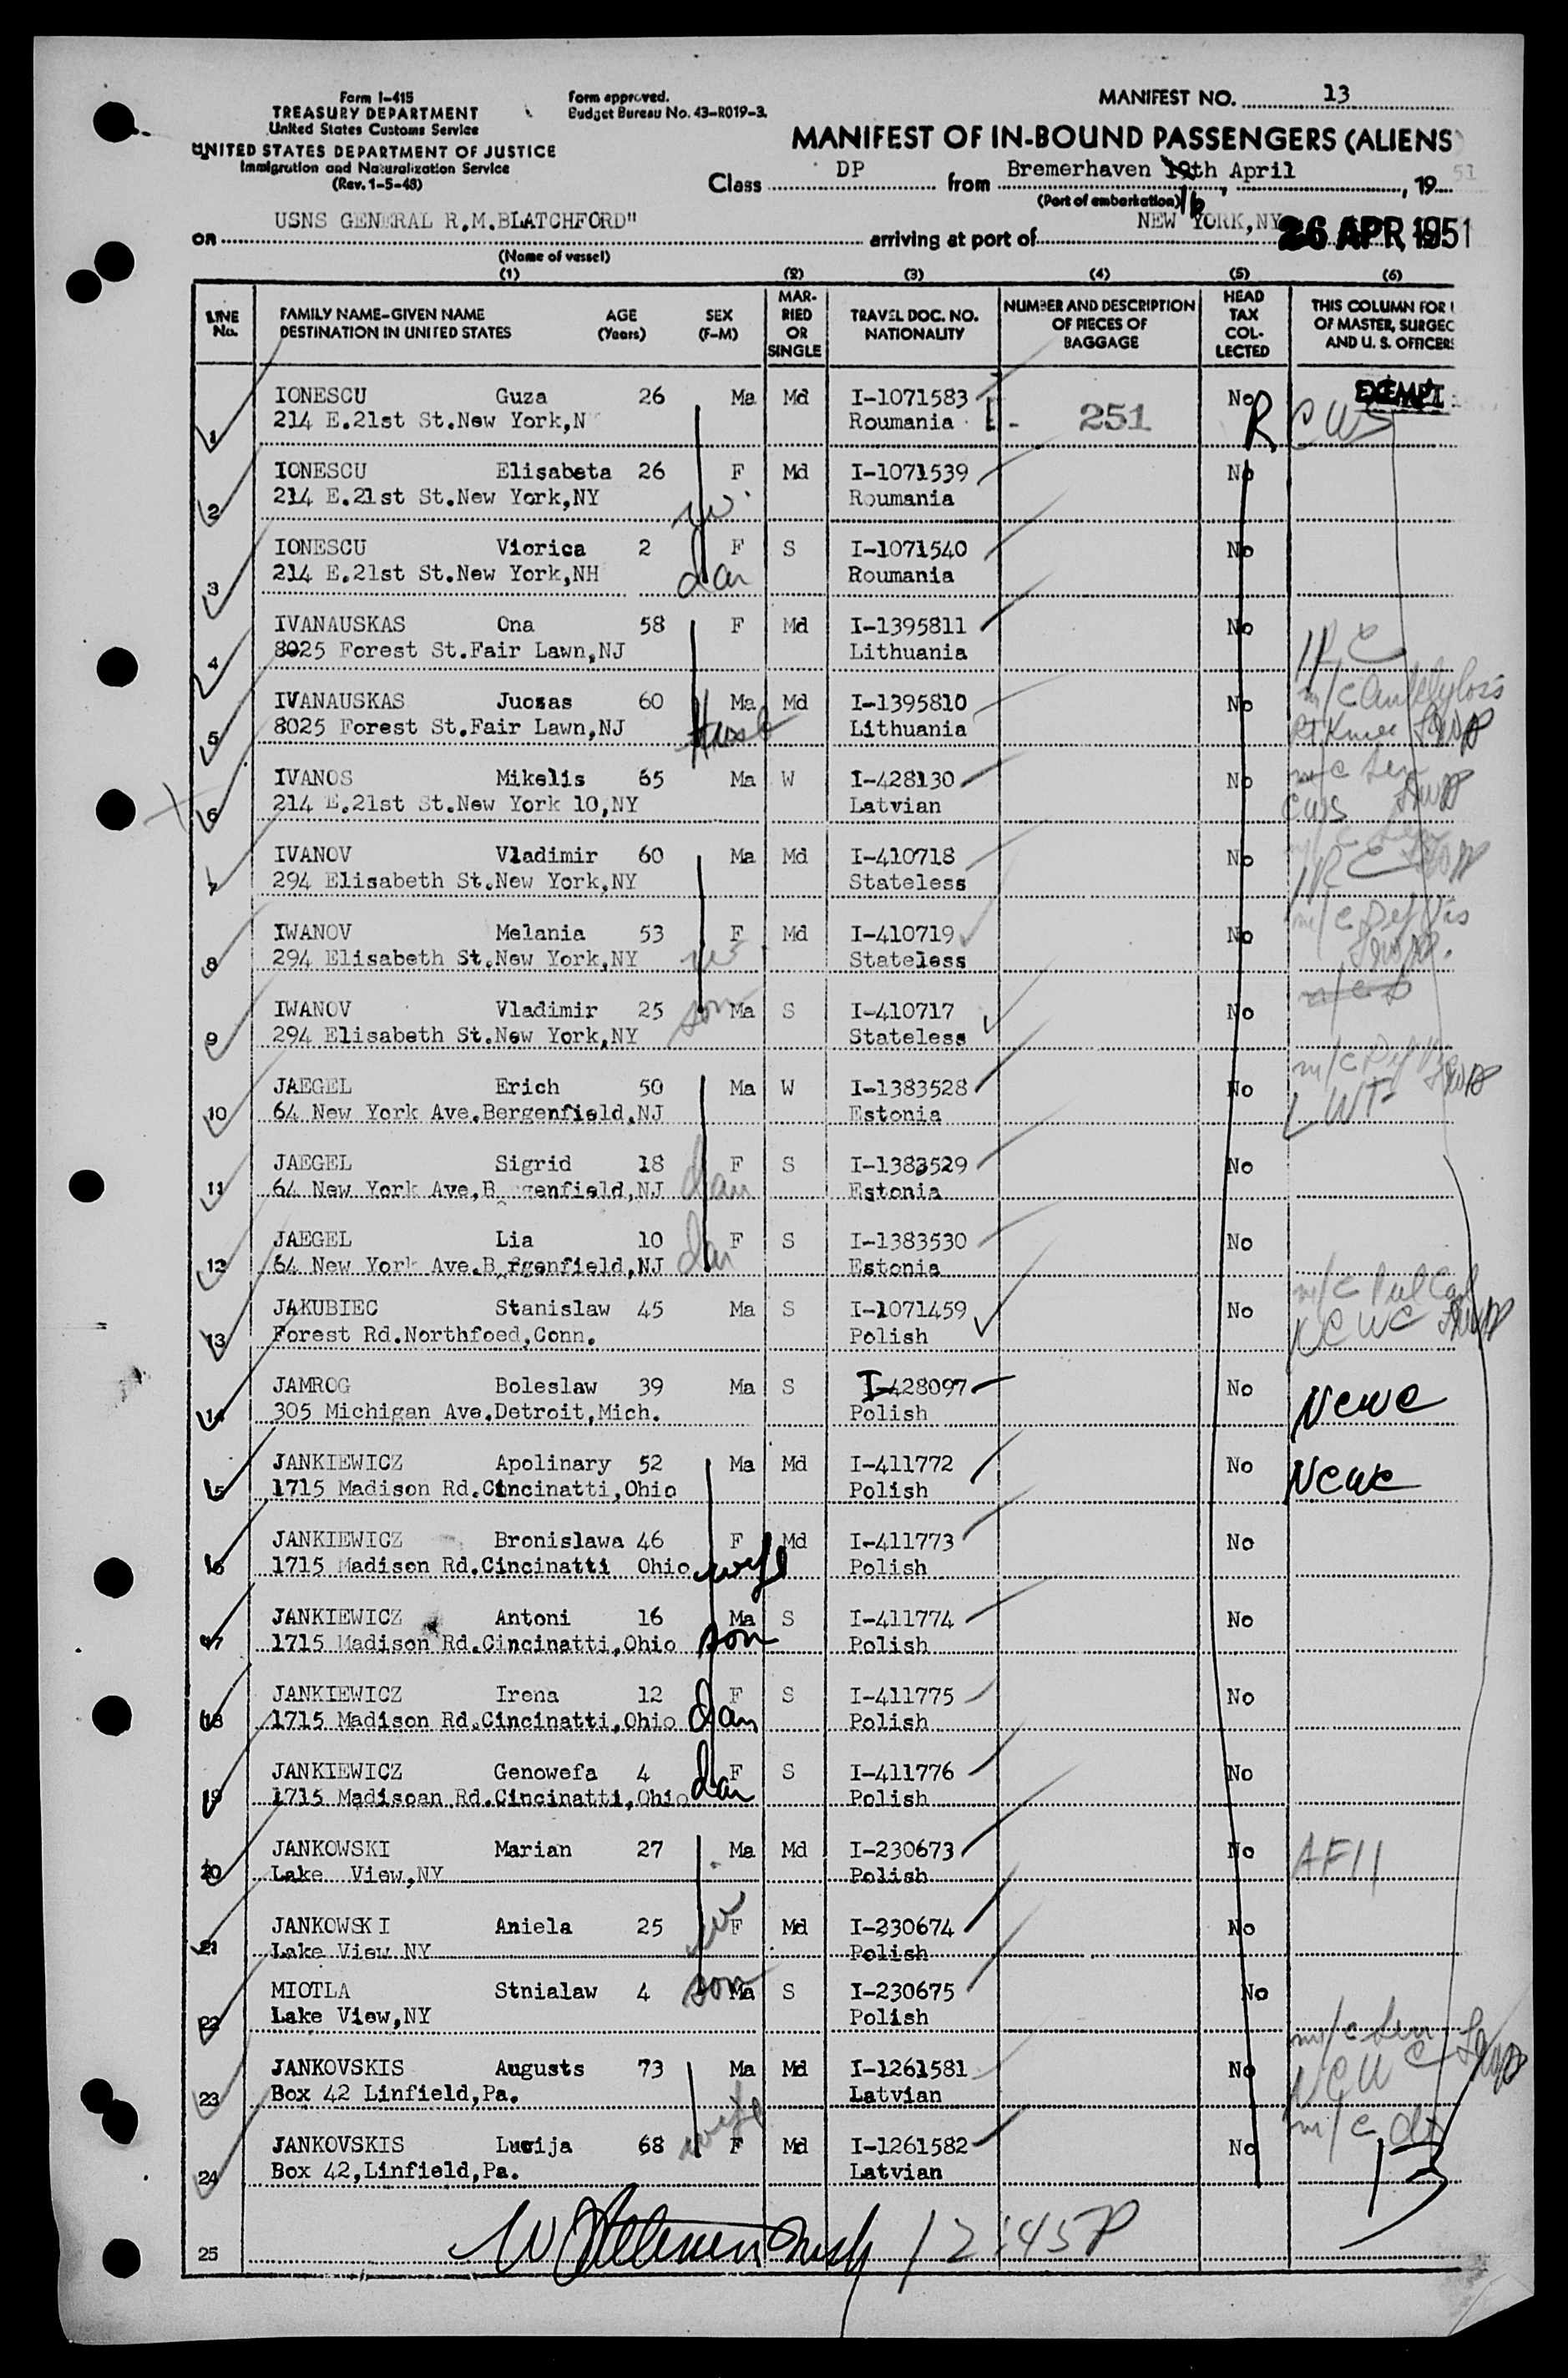 Form I-415
TREASURY DEPARTMENT
United States Customs Service
UNITED STATES DEPARTMENT OF JUSTICE
Immigration and Naturalization Service
(Rev. 1-5-48)
Form approved.
Budget Bureau No. 43-R019-3.
MANIFEST NO. 13
MANIFEST OF IN-BOUND PASSENGERS (ALIENS
Class DP from Bremerhaven 19th April, 1951
(Port of embarkation) 16
on USNS GENERAL R.M.BLATCHFORD" arriving at port of NEW YORK,NY 26 APR 1951
(Name of vessel)
(1) (2) (3) (4) (5) (6)
LINE No.
FAMILY NAME-GIVEN NAME AGE SEX
DESTINATION IN UNITED STATES (Years) (F-M)
MARRIED OR SINGLE
TRAVEL DOC. NO. NATIONALITY
NUMBER AND DESCRIPTION OF PIECES OF BAGGAGE
HEAD TAX COLLECTED
THIS COLUMN FOR
OF MASTER, SURGE
AND U. S. OFFICERS
1 IONESCU Guza 26 Ma Md I-1071583 No EXEMPT
214 E.21st St.New York,N Roumania 251 R CWS
2 IONESCU Elisabeta 26 F Md I-1071539 No
214 E.21st St.New York,NY w. Roumania
3 IONESCU Viorica 2 F S I-1071540 No
214 E.21st St.New York,NH dau Roumania
4 IVANAUSKAS Ona 58 F Md I-1395811 No
8025 Forest St.Fair Lawn,NJ Lithuania IRC
5 IVANAUSKAS Juozas 60 Ma Md I-1395810 No m/c ankylosis
8025 Forest St.Fair Lawn,NJ Husb Lithuania Rt Knee
6 IVANOS Mikelis 65 Ma W I-428130 No m/c Sen
214 E.21st St.New York 10,NY Latvian CWS
7 IVANOV Vladimir 60 Ma Md I-410718 No m/c Sen
294 Elisabeth St.New York,NY Stateless IRC
8 IWANOV Melania 53 F Md I-410719 No m/c Def Vis
294 Elisabeth St.New York,NY w. Stateless
9 IWANOV Vladimir 25 son Ma S I-410717 No
294 Elisabeth St.New York,NY Stateless
10 JAEGEL Erich 50 Ma W I-1383528 No m/c Def Vis
64 New York Ave.Bergenfield,NJ Estonia LWF
11 JAEGEL Sigrid 18 F S I-1383529 No
64 New York Ave,B genfield,NJ dau Estonia
12 JAEGEL Lia 10 F S I-1383530 No
64 New York Ave.B rgenfield,NJ dau Estonia
13 JAKUBIEC Stanislaw 45 Ma S I-1071459 No m/c Pul Cal
Forest Rd.Northfoed,Conn. Polish NCWC
14 JAMROG Boleslaw 39 Ma S I-428097 No
305 Michigan Ave.Detroit,Mich. Polish NCWC
15 JANKIEWICZ Apolinary 52 Ma Md I-411772 No
1715 Madison Rd.Cincinatti,Ohio Polish NCWC
16 JANKIEWICZ Bronislawa 46 F Md I-411773 No
1715 Madison Rd.Cincinatti Ohio wife Polish
17 JANKIEWICZ Antoni 16 Ma S I-411774 No
1715 Madison Rd.Cincinatti,Ohio son Polish
18 JANKIEWICZ Irena 12 F S I-411775 No
1715 Madison Rd.Cincinatti,Ohio dau Polish
19 JANKIEWICZ Genowefa 4 F S I-411776 No
1715 Madisoan Rd.Cincinatti,Ohio dau Polish
20 JANKOWSKI Marian 27 Ma Md I-230673 No
Lake View,NY Polish AFII
21 JANKOWSKI Aniela 25 w F Md I-230674 No
Lake View NY Polish
22 MIOTLA Stnialaw 4 son Ma S I-230675 No
Lake View,NY Polish
23 JANKOVSKIS Augusts 73 Ma Md I-1261581 No m/c Sen
Box 42 Linfield,Pa. Latvian NCWC
24 JANKOVSKIS Lucija 68 wife F Md I-1261582 No m/c
Box 42,Linfield,Pa. Latvian 13
25 12:45P